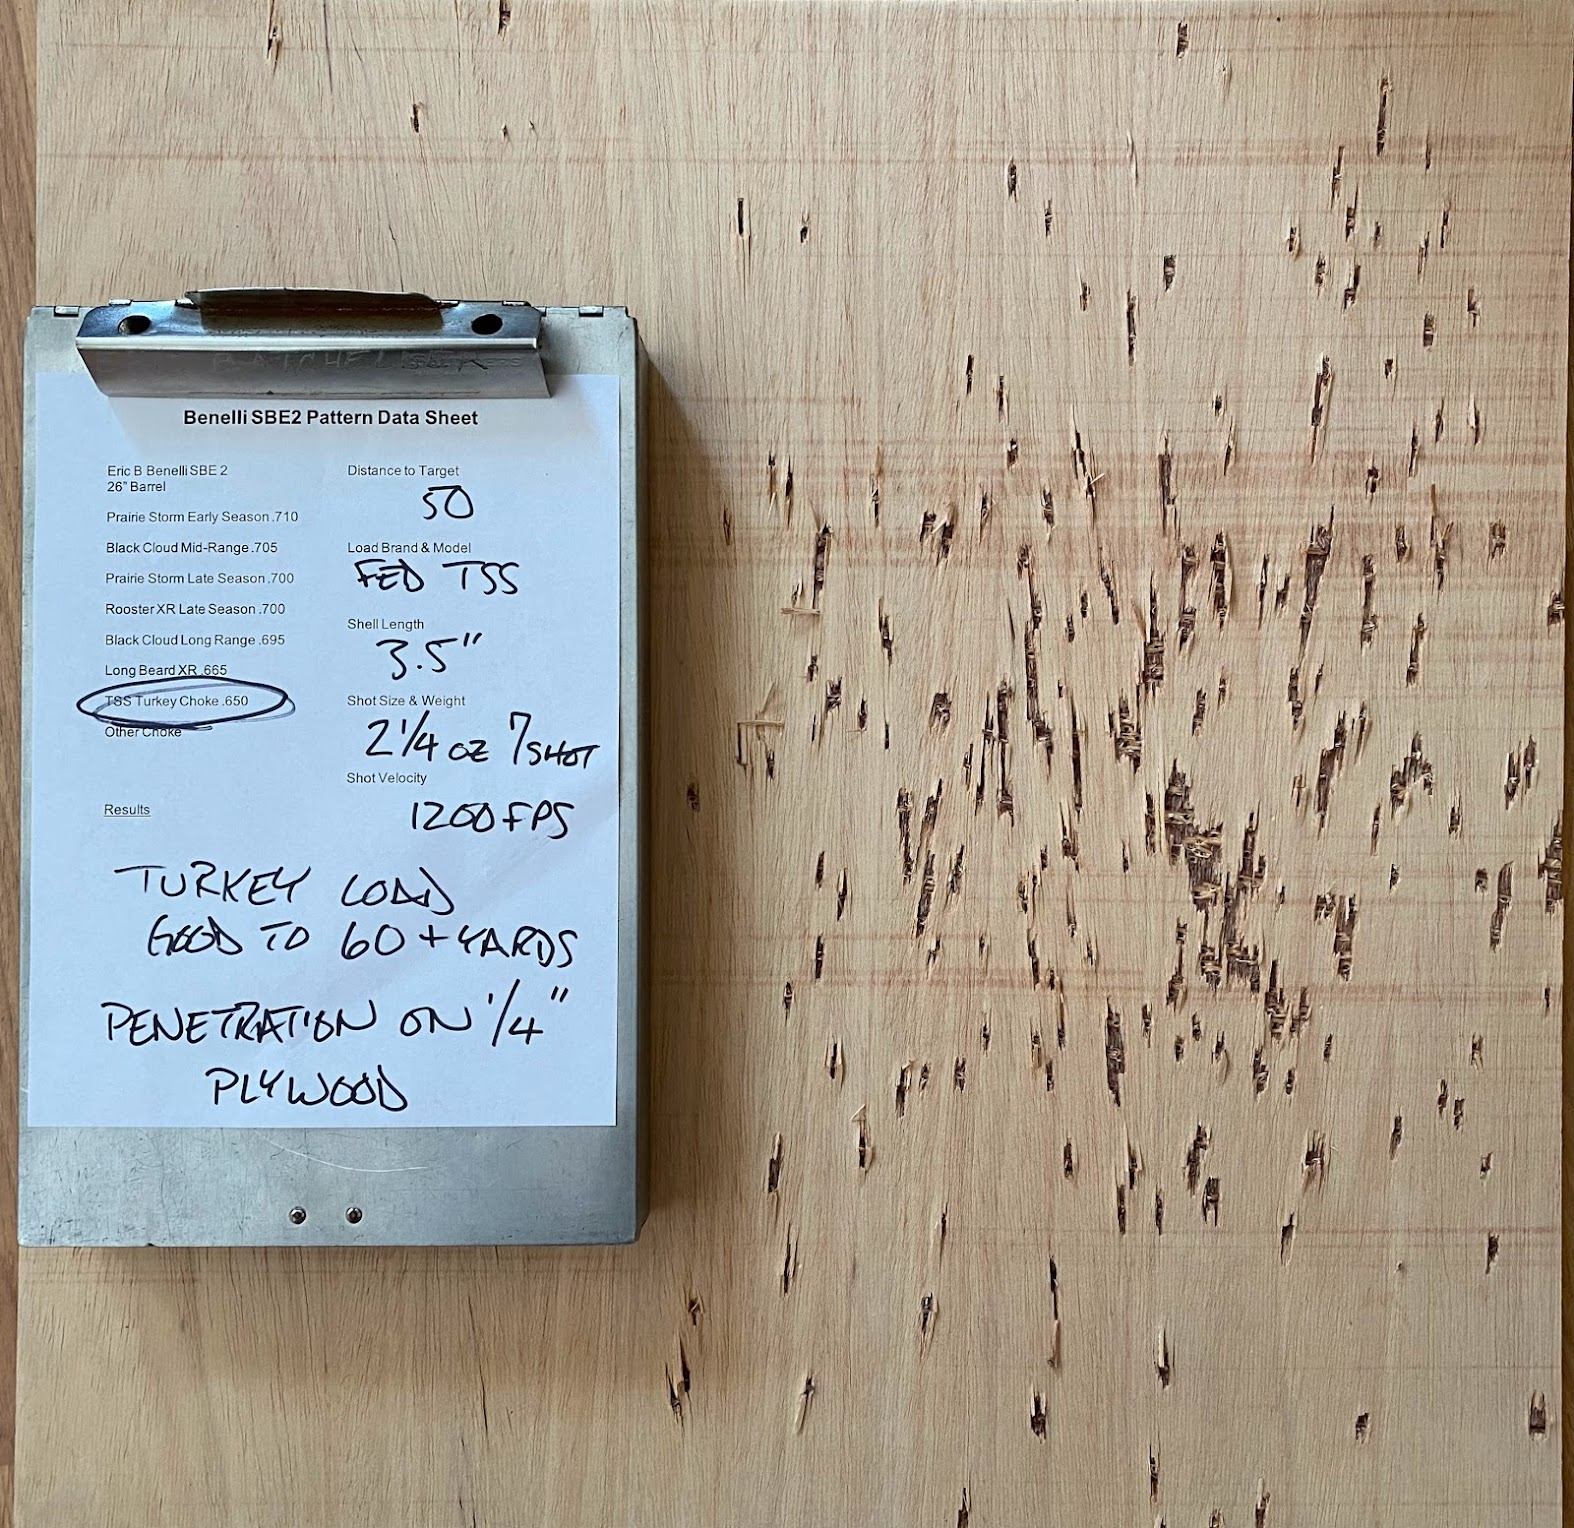 Benelli SBE2 Pattern Data Sheet
Eric B Benelli SBE 2
26" Barrel
Prairie Storm Early Season .710
Black Cloud Mid-Range .705
Prairie Storm Late Season .700
Rooster XR Late Season .700
Black Cloud Long Range .695
Long Beard XR .665
TSS Turkey Choke .650
Other Choke
Distance to Target
50
Load Brand & Model
FED TSS
Shell Length
3.5"
Shot Size & Weight
2 1/4 oz 7 SHOT
Shot Velocity
1200 FPS
Results
TURKEY LOAD
GOOD TO 60+ YARDS
PENETRATION ON 1/4"
PLYWOOD